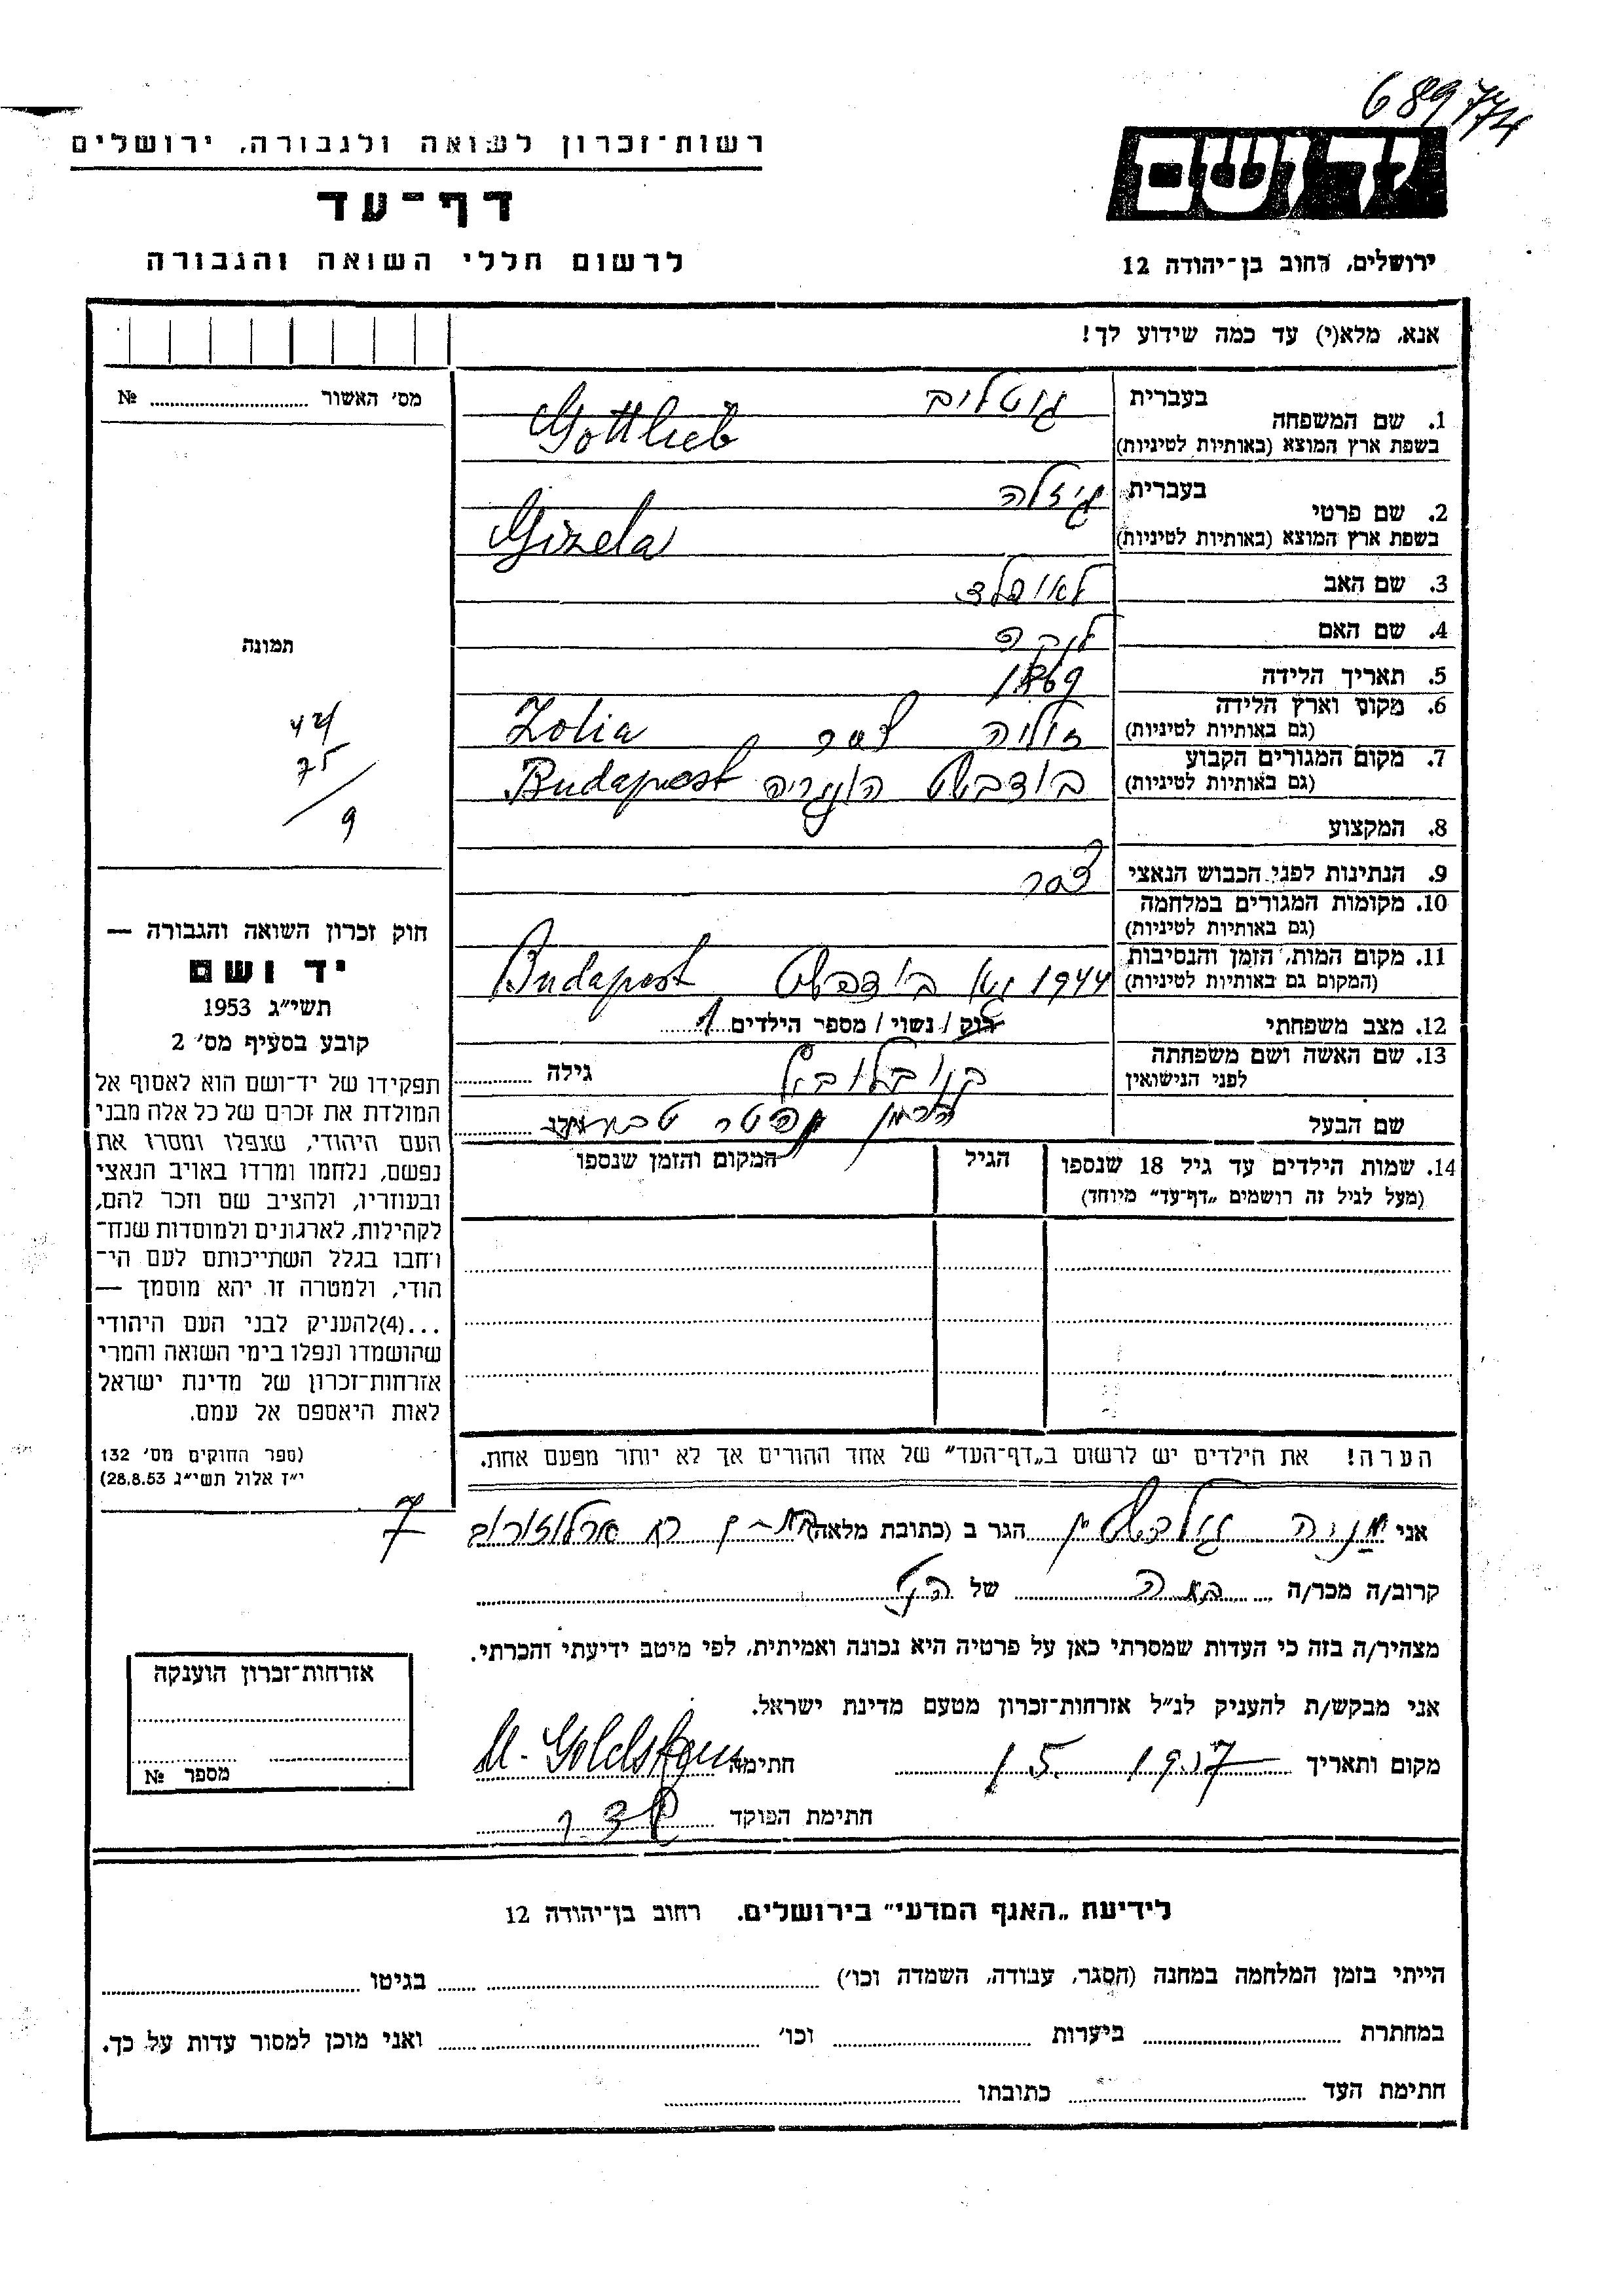 689774
רשות־זכרון לשואה ולגבורה, ירושלים
יד ושם
דף־עד
לרשום חללי השואה והגבורה
ירושלים, רחוב בן־יהודה 12
אנא, מלא(י) עד כמה שידוע לך!
מס׳ האשור ........ №
1. שם המשפחה
בעברית גוטליב
בשפת ארץ המוצא (באותיות לטיניות) Gottlieb
2. שם פרטי
בעברית גיזלה
בשפת ארץ המוצא (באותיות לטיניות) Gizela
3. שם האב
4. שם האם
5. תאריך הלידה 1869
6. מקום וארץ הלידה
(גם באותיות לטיניות) Zolia
7. מקום המגורים הקבוע
(גם באותיות לטיניות) בודפשט הונגריה Budapest
8. המקצוע
9. הנתינות לפני הכבוש הנאצי
10. מקומות המגורים במלחמה
(גם באותיות לטיניות)
11. מקום המות, הזמן והנסיבות
(המקום גם באותיות לטיניות) 1944 בודפשט Budapest
12. מצב משפחתי רוק / נשוי / מספר הילדים 1
13. שם האשה ושם משפחתה
לפני הנישואין
גילה
שם הבעל
14. שמות הילדים עד גיל 18 שנספו
(מעל לגיל זה רושמים „דף־עד” מיוחד)
הגיל
המקום והזמן שנספו
תמונה
75
9
חוק זכרון השואה והגבורה —
יד ושם
תשי״ג 1953
קובע בסעיף מס׳ 2
תפקידו של יד־ושם הוא לאסוף אל
המולדת את זכרם של כל אלה מבני
העם היהודי, שנפלו ומסרו את
נפשם, נלחמו ומרדו באויב הנאצי
ובעוזריו, ולהציב שם וזכר להם,
לקהילות, לארגונים ולמוסדות שנח־
רחבו בגלל השתייכותם לעם הי־
הודי, ולמטרה זו יהא מוסמך —
...(4)להעניק לבני העם היהודי
שהושמדו ונפלו בימי השואה והמרי
אזרחות־זכרון של מדינת ישראל
לאות היאספם אל עמם.
(ספר החוקים מס׳ 132
י״ז אלול תשי״ג 28.8.53)
הערה! את הילדים יש לרשום ב„דף־העד” של אחד ההורים אך לא יותר מפעם אחת.
אני גולדשטיין הגר ב (כתובת מלאה) רח ארלוזורוב 7
קרוב/ה מכר/ה של
מצהיר/ה בזה כי העדות שמסרתי כאן על פרטיה היא נכונה ואמיתית, לפי מיטב ידיעתי והכרתי.
אני מבקש/ת להעניק לנ״ל אזרחות־זכרון מטעם מדינת ישראל.
מקום ותאריך 1.5. 1957 חתימה M. Goldstein
חתימת הפוקד
אזרחות־זכרון הוענקה
מספר №
לידיעת „האגף המדעי” בירושלים, רחוב בן־יהודה 12
הייתי בזמן המלחמה במחנה (הסגר, עבודה, השמדה וכו׳) ........ בגיטו ........
במחתרת ........ ביערות ........ וכו׳ ........ ואני מוכן למסור עדות על כך.
חתימת העד ........ כתובתו ........